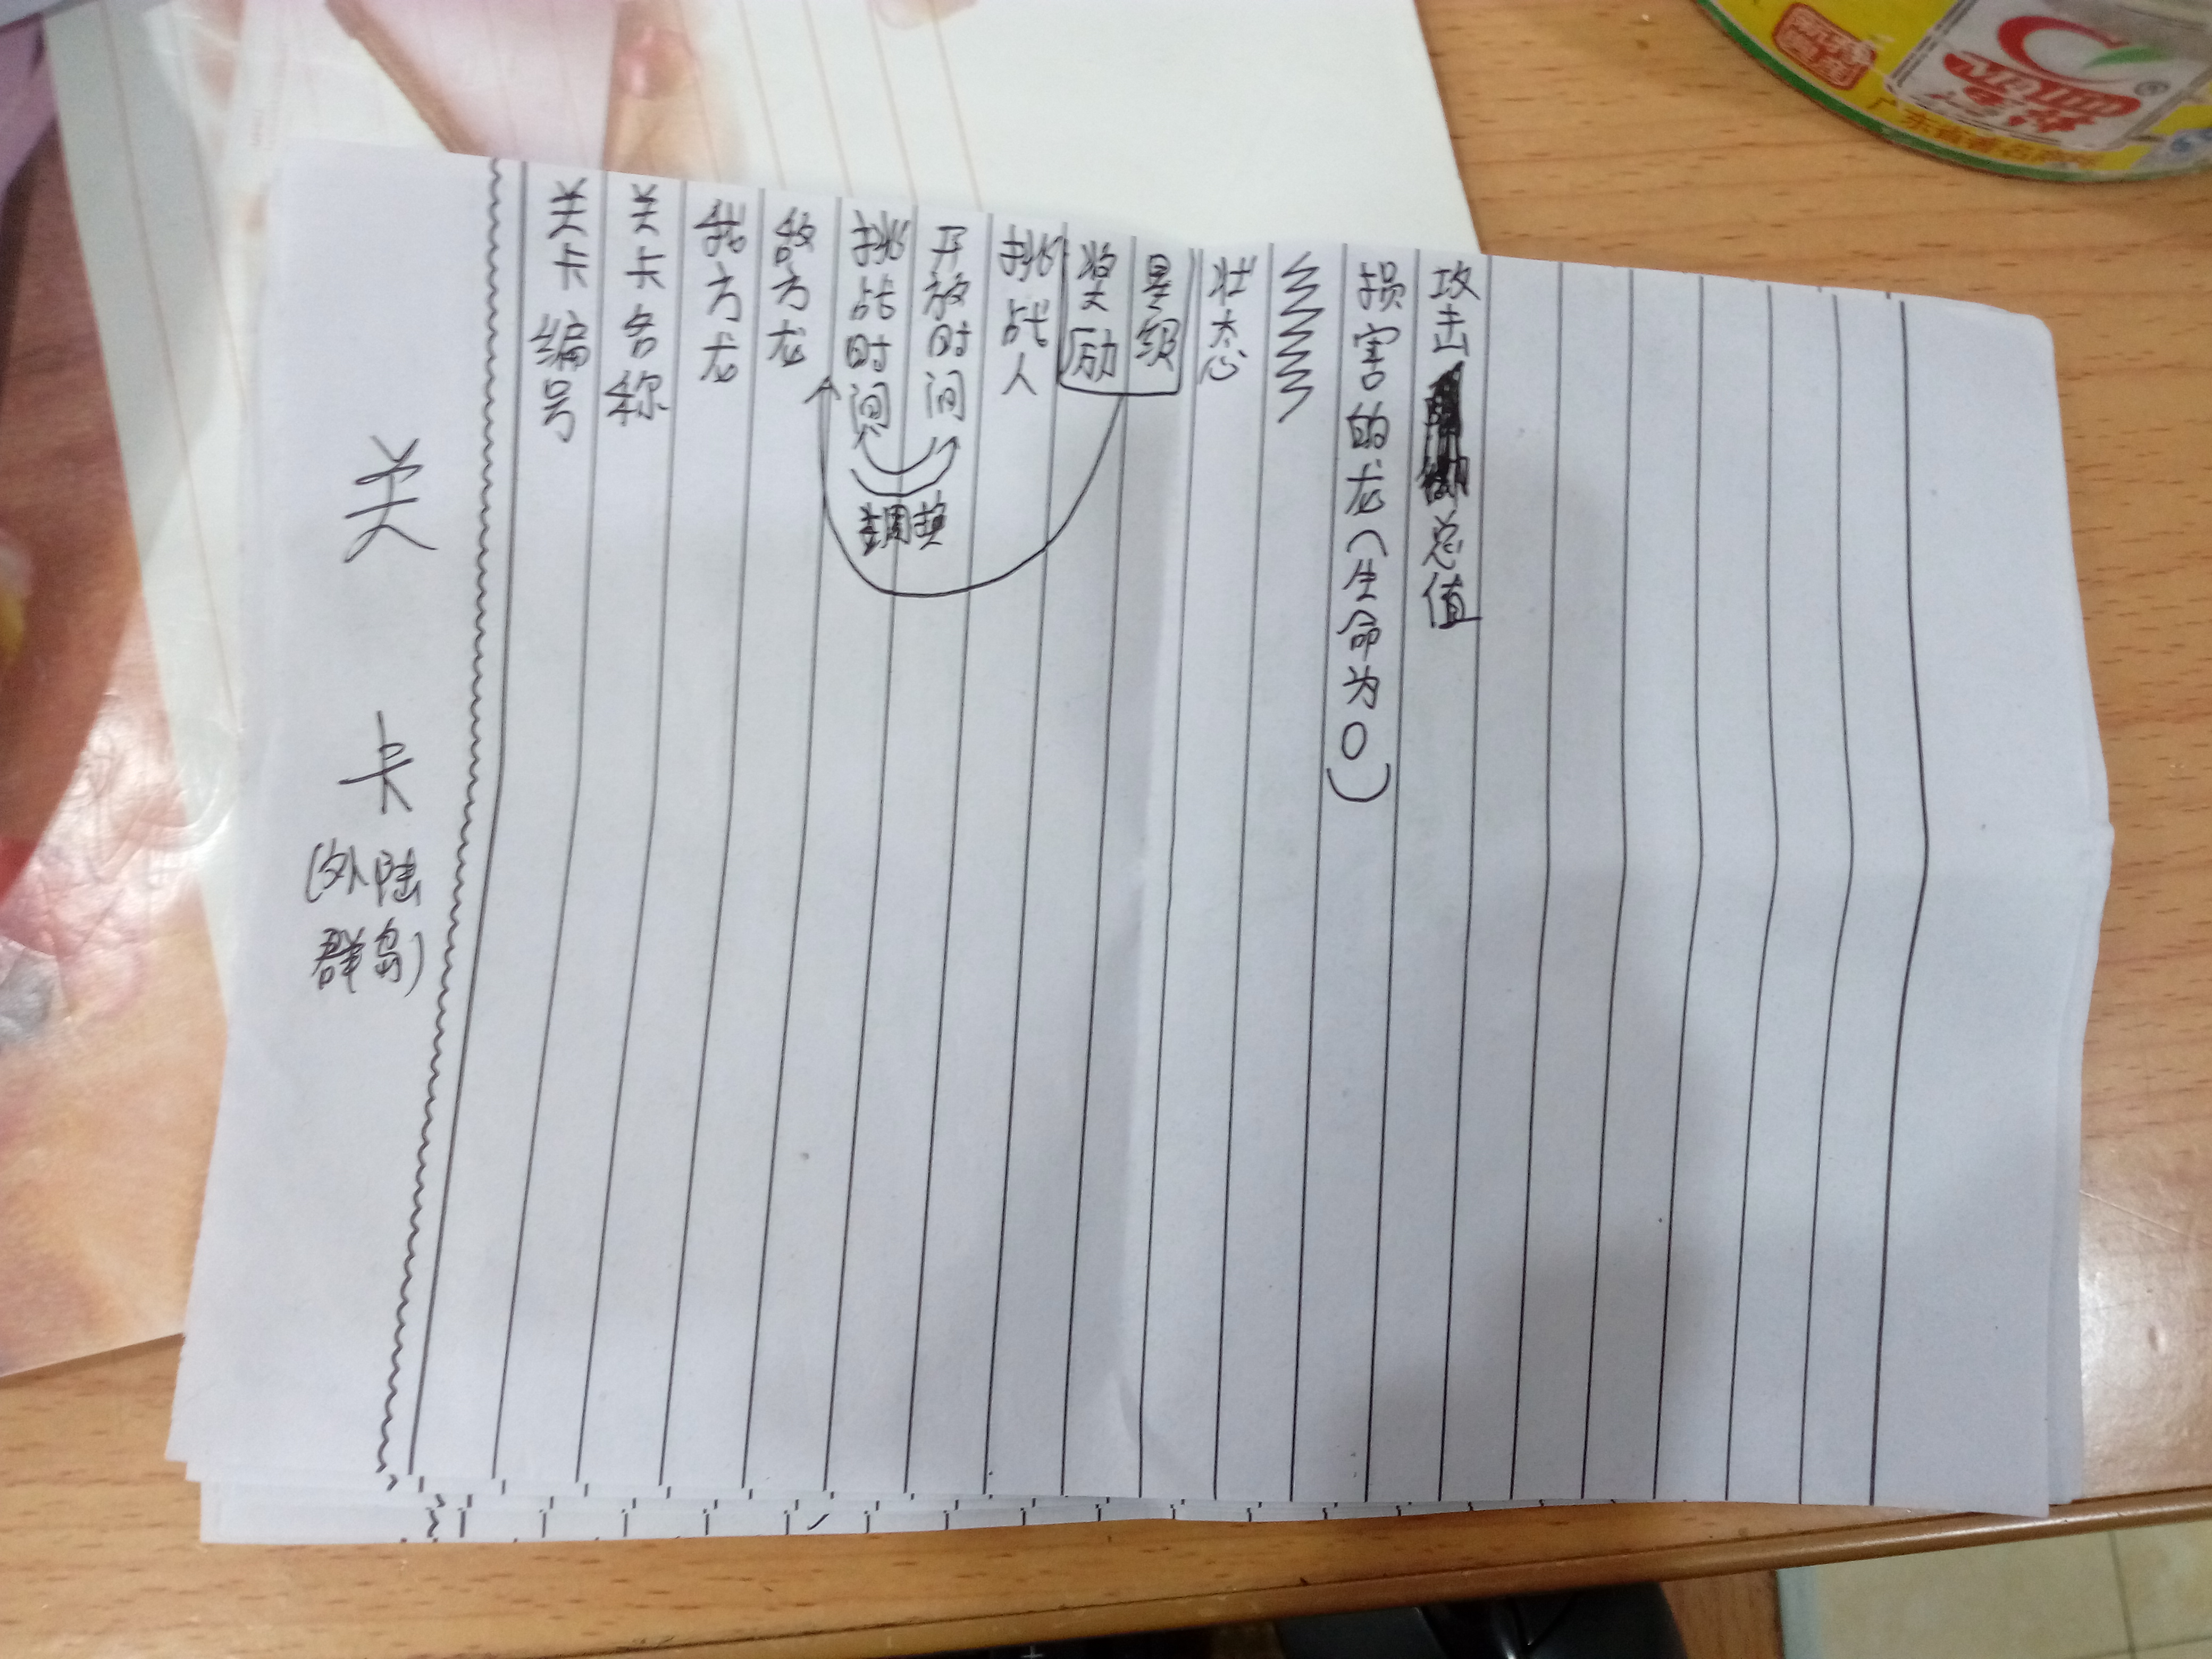 关卡
(外陆
群岛)
关卡编号
关卡名称
我方龙
敌方龙
挑战时间
开放时间
调换
挑战人
奖励
星级
状态
损害的龙(生命为0)
攻击总值
广东省著名商标